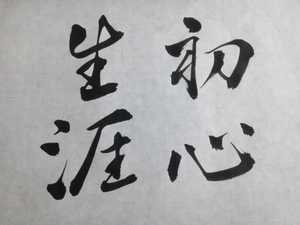 初心
生涯